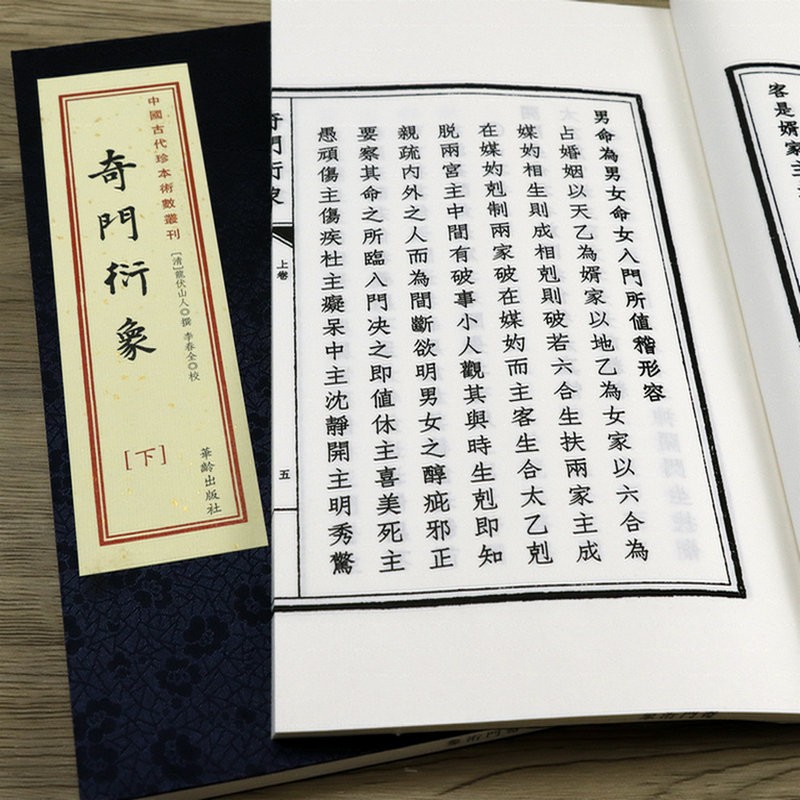 中國古代珍本術數叢刊
奇門衍象
[清]龍伏山人◎撰 李春全◎校
[下]
華齡出版社
男命為男女命女入門所值稽形容
占婚姻以天乙為婿家以地乙為女家以六合為
媒妁相生則成相剋則破若六合生扶兩家主成
在媒妁剋制兩家破在媒妁而主客生合太乙剋
脱兩宮主中間有破事小人觀其與時生剋即知
親疏內外之人而為間斷欲明男女之醇疵邪正
要察其命之所臨入門決之即值休主喜美死主
愚頑傷主傷疾杜主癡呆中主沈靜開主明秀驚
奇門衍象
上卷
五
客是婿家主